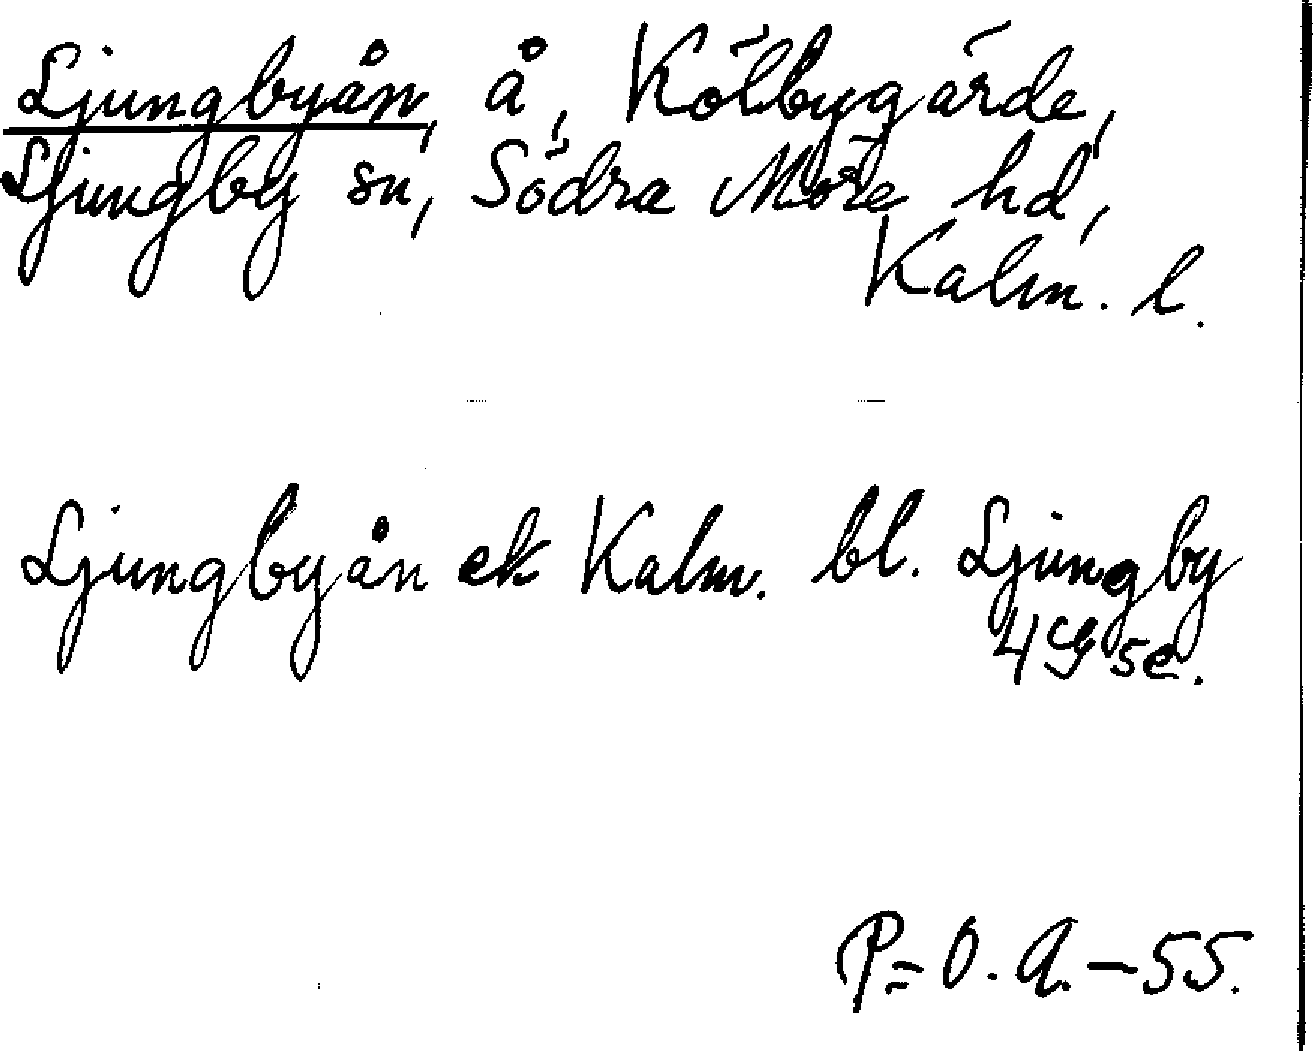 Ljungbyån, å, Kölbygärde,
Ljungby sn, Södra Möre hd,
Kalm. l.
Ljungbyån ek Kalm. bl. Ljungby
4G se.
P=O. A.-55.